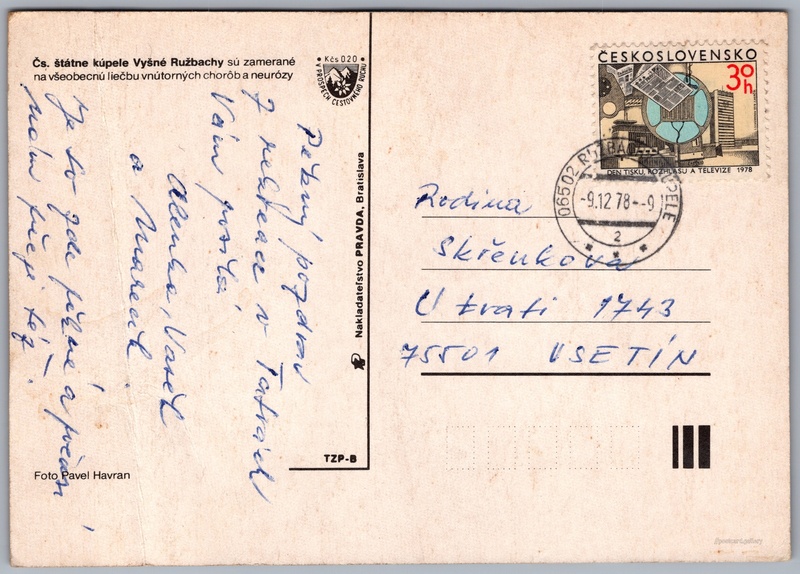 Čs. štátne kúpele Vyšné Ružbachy sú zamerané
na všeobecnú liečbu vnútorných chorôb a neurózy
Kčs 020
V PROSPECH CESTOVNÉHO RUCHU
Pěkný pozdrav
z rekreace v Tatrách
Vám posílá
Alenka, Vašek
a Mareček.
Je to zde pěkné a počasí
nám přeje též.
Foto Pavel Havran
Nakladateľstvo PRAVDA, Bratislava
TZP-B
ČESKOSLOVENSKO
30h
DEN TISKU, ROZHLASU A TELEVIZE 1978
06502 KÚPELE
-9.12.78--9
2
Rodina
Skřenkova
U trati 1743
75501 VSETÍN